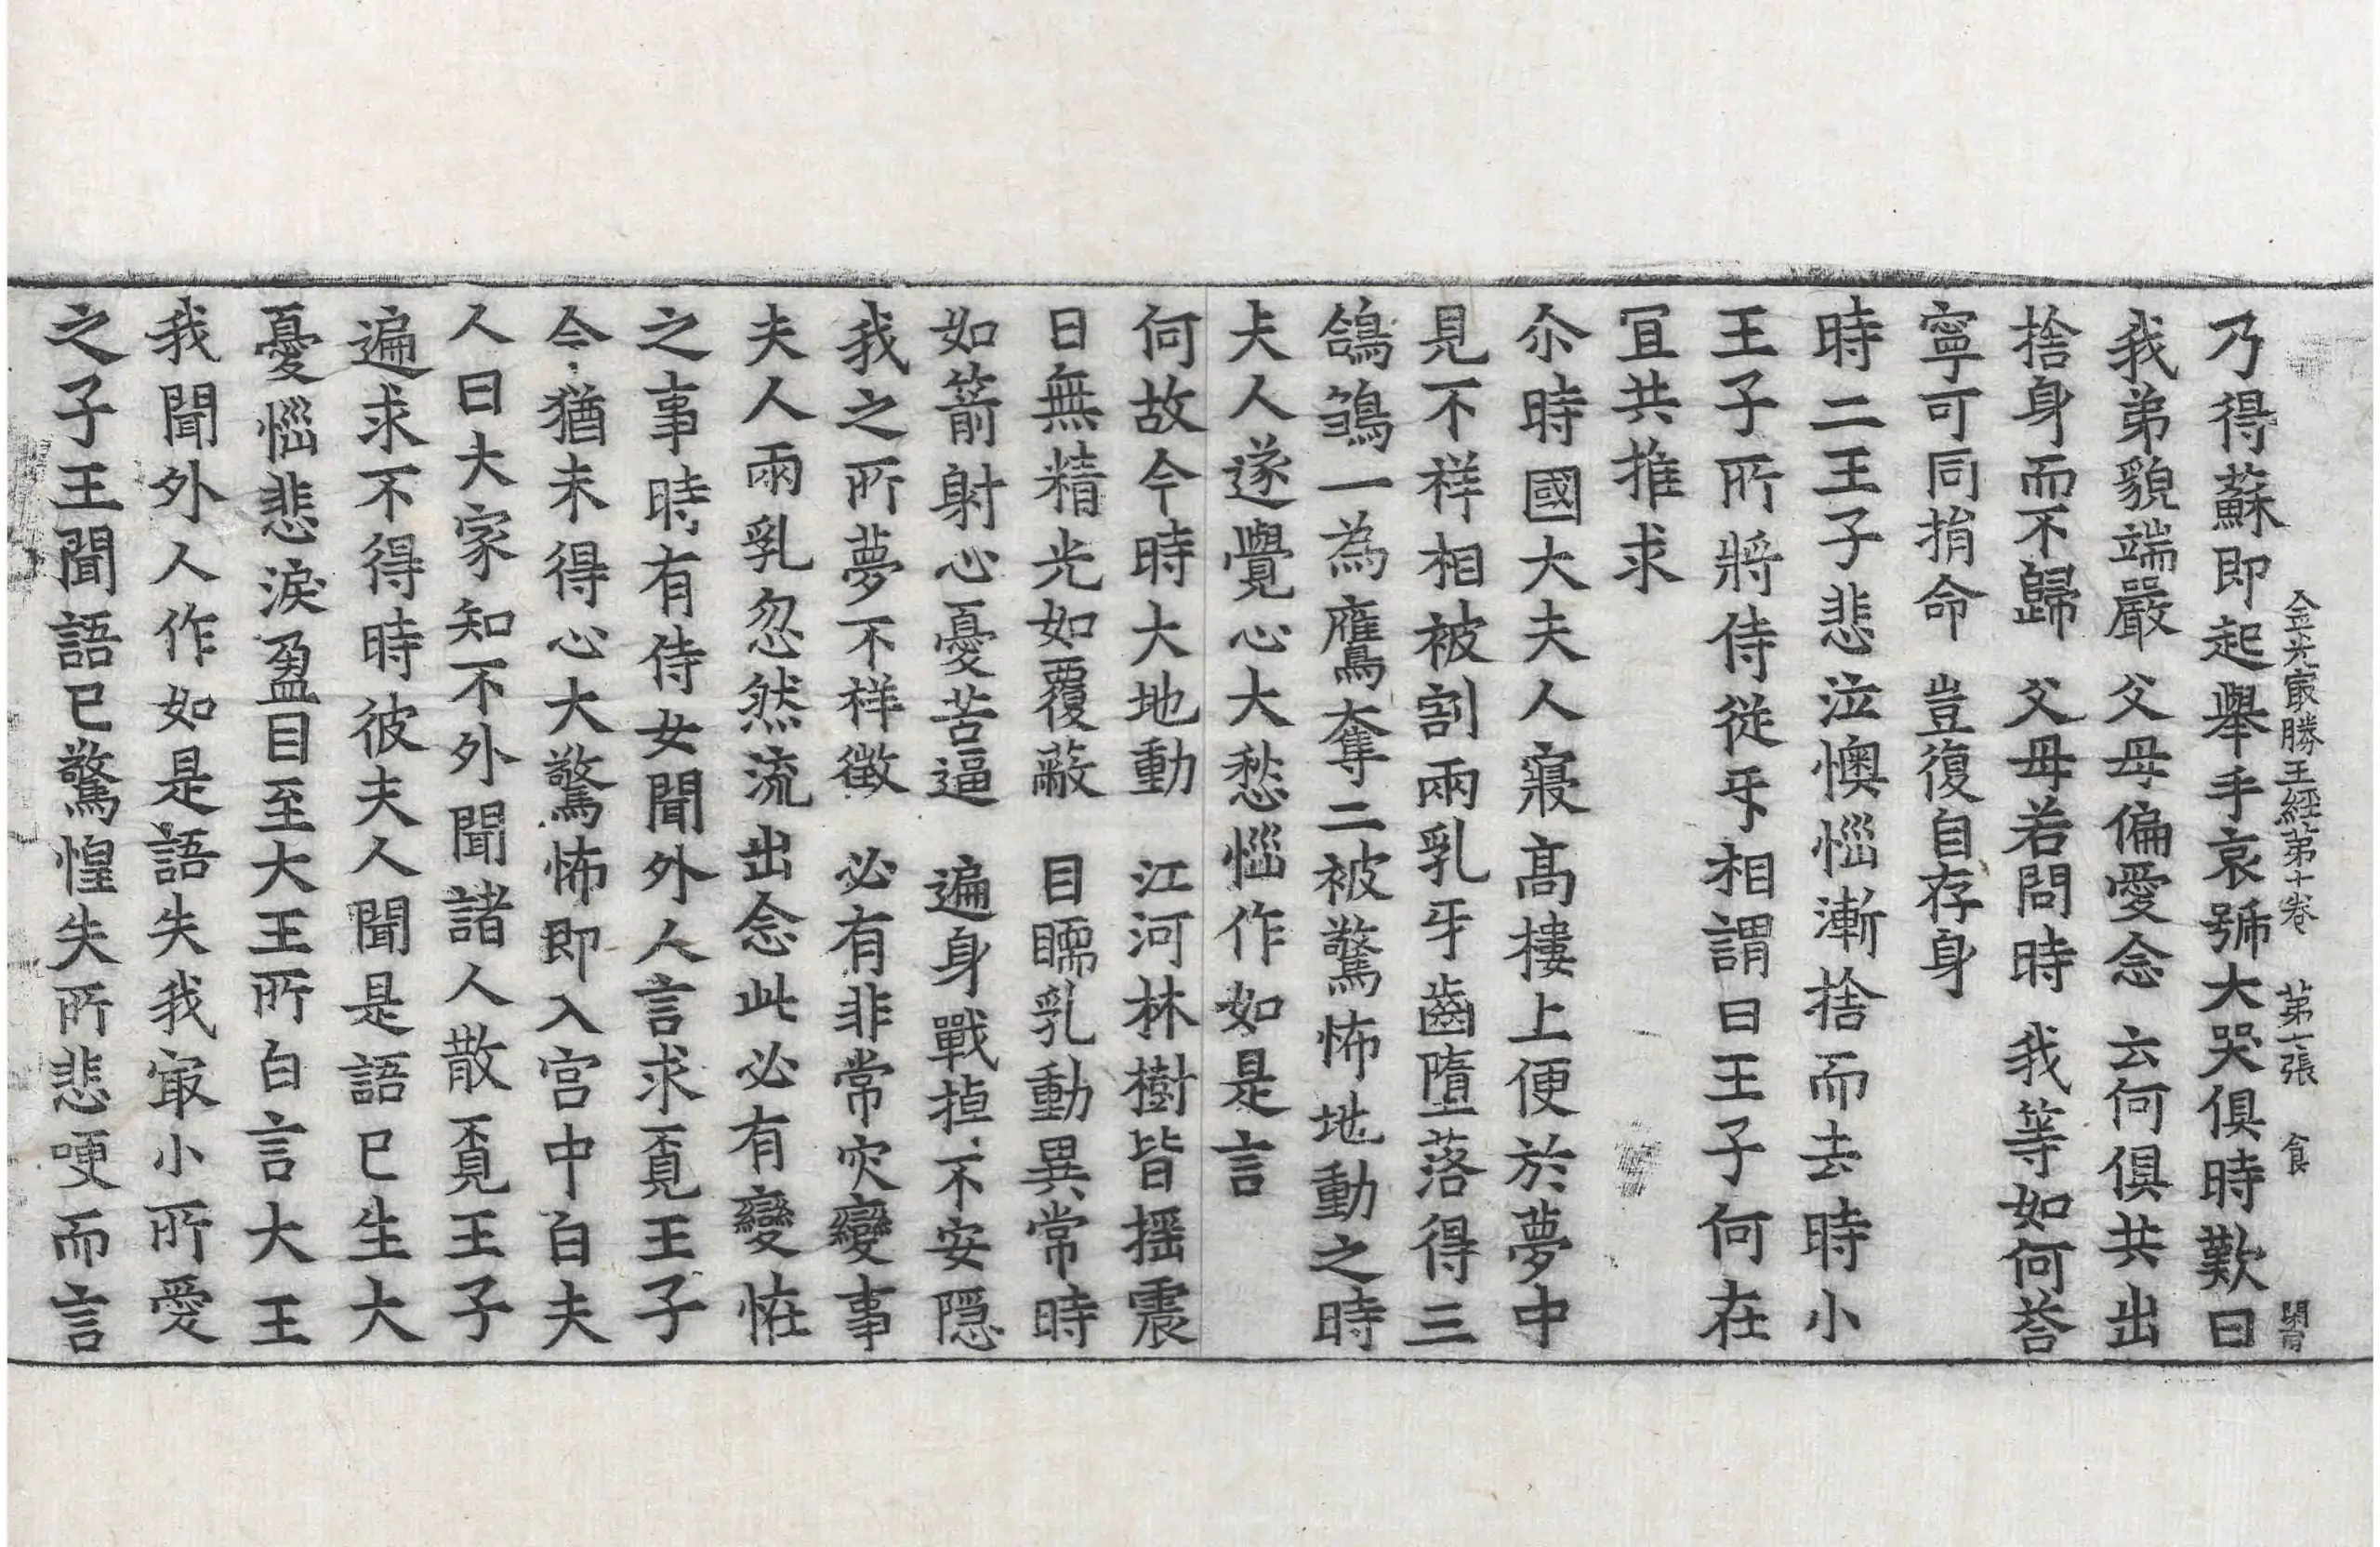 金光冣勝王經第十卷 第七張 食
乃得蘇即起舉手哀號大哭俱時歎曰
我弟貌端嚴 父母偏愛念 云何俱共出
捨身而不歸 父母若問時 我等如何荅
寧可同捐命 豈復自存身
時二王子悲泣懊惱漸捨而去時小
王子所將侍從㸦相謂曰王子何在
冝共推求
尒時國大夫人寢髙樓上便於夢中
見不祥相被割兩乳牙齒墮落得三
鴿鶵一為鷹奪二被驚怖地動之時
夫人遂覺心大愁惱作如是言
何故今時大地動 江河林樹皆揺震
日無精光如覆蔽 目瞤乳動異常時
如箭射心憂苦逼 遍身戰掉不安隱
我之所夢不祥徵 必有非常灾變事
夫人兩乳忽然流出念此必有變恠
之事時有侍女聞外人言求覔王子
今猶未得心大驚怖即入宫中白夫
人曰大家知不外聞諸人散覔王子
遍求不得時彼夫人聞是語已生大
憂惱悲淚盈目至大王所白言大王
我聞外人作如是語失我冣小所愛
之子王聞語已驚惶失所悲哽而言